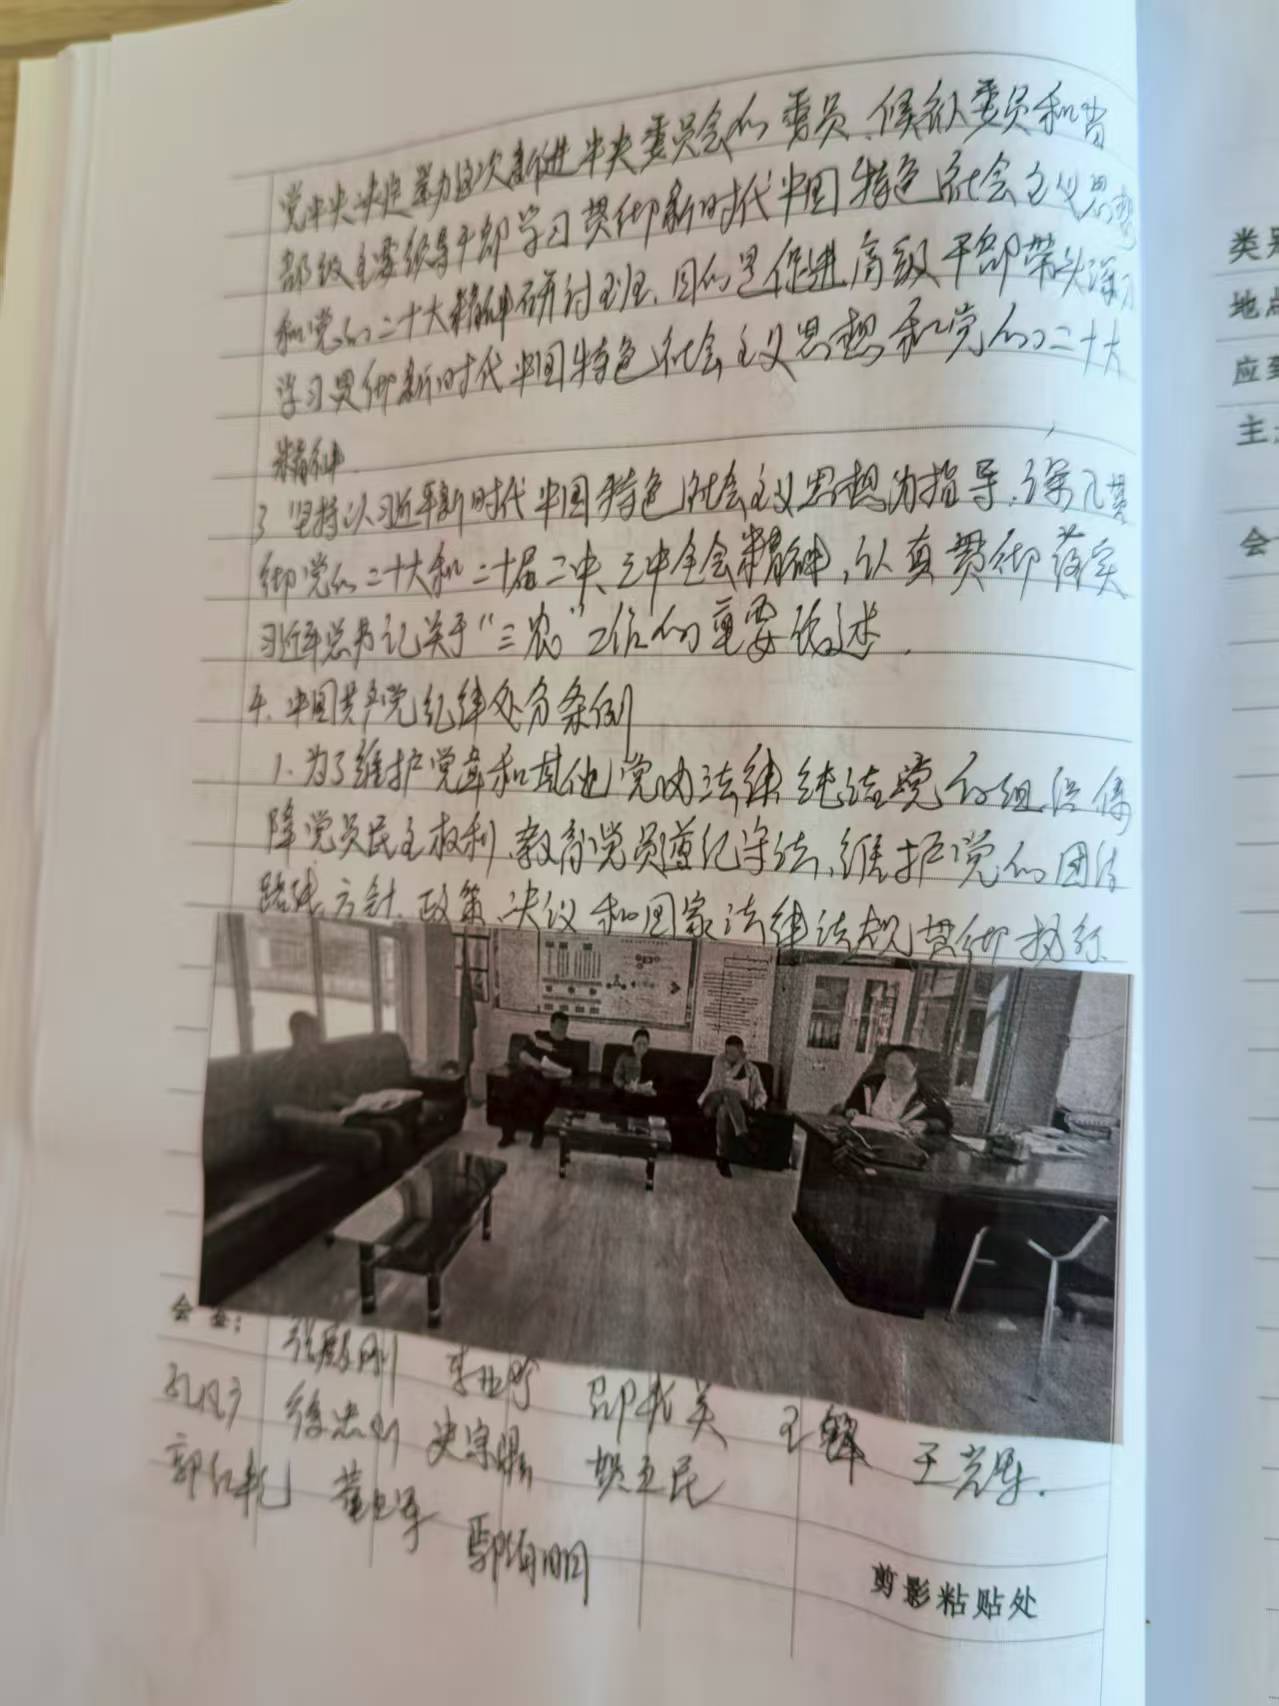 党中央决定举办这次新进中央委员会的委员、候补委员和省
部级主要领导干部学习贯彻新时代中国特色社会主义思想
和党的二十大精神研讨班,目的是促进高级干部带头深入
学习贯彻新时代中国特色社会主义思想和党的二十大
精神.
3 坚持以习近平新时代中国特色社会主义思想为指导,深入贯
彻党的二十大和二十届二中、三中全会精神,认真贯彻落实
习近平总书记关于“三农”工作的重要论述.
4、中国共产党纪律处分条例
1、为了维护党章和其他党内法律,纯洁党的组织保
障党员民主权利、教育党员遵纪守法、维护党的团结
路线、方针、政策、决议和国家法律法规贯彻执行.
类别
地点
应到
主
会
会 签:
张殿刚 邵 美 王锋 王光军.
徐忠 史宗鹏 胡立民
郭红乾 董卫军 鄢海明
剪影粘贴处